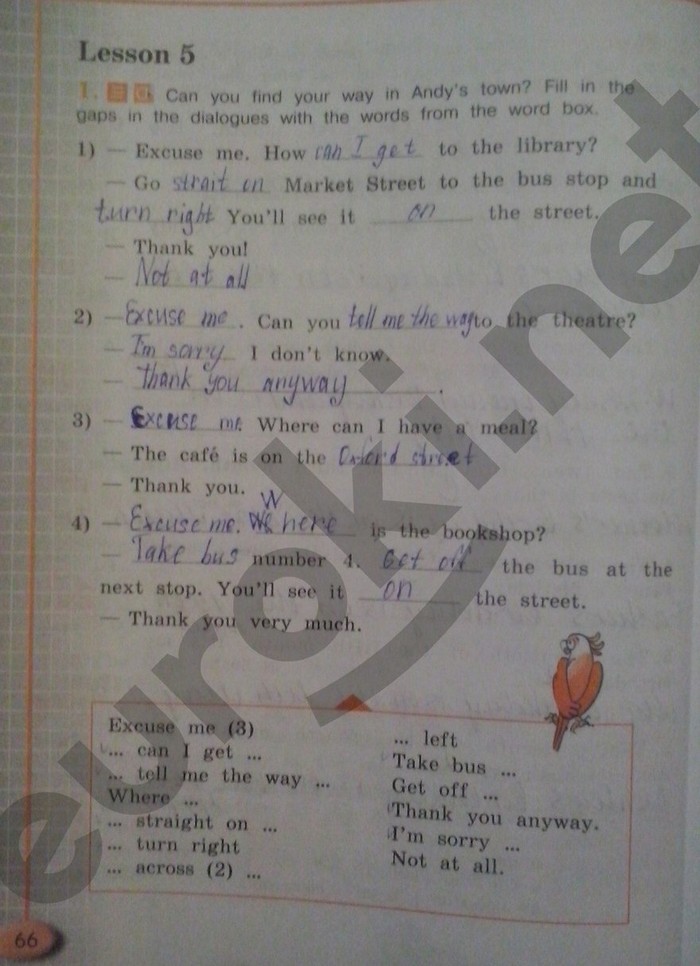 Lesson 5
1. Can you find your way in Andy's town? Fill in the
gaps in the dialogues with the words from the word box.
1) — Excuse me. How can I get to the library?
— Go strait on Market Street to the bus stop and
turn right You'll see it on the street.
— Thank you!
— Not at all
2) — Excuse me. Can you tell me the way to the theatre?
— I'm sorry I don't know.
— Thank you anyway.
3) — Excuse me. Where can I have a meal?
— The café is on the street
— Thank you.
4) — Excuse me. Where is the bookshop?
— Take bus number 4. Get off the bus at the
next stop. You'll see it on the street.
— Thank you very much.
Excuse me (3)
... can I get ...
... tell me the way ...
Where ...
... straight on ...
... turn right
... across (2) ...
... left
Take bus ...
Get off ...
Thank you anyway.
I'm sorry ...
Not at all.
66
eurokin.net